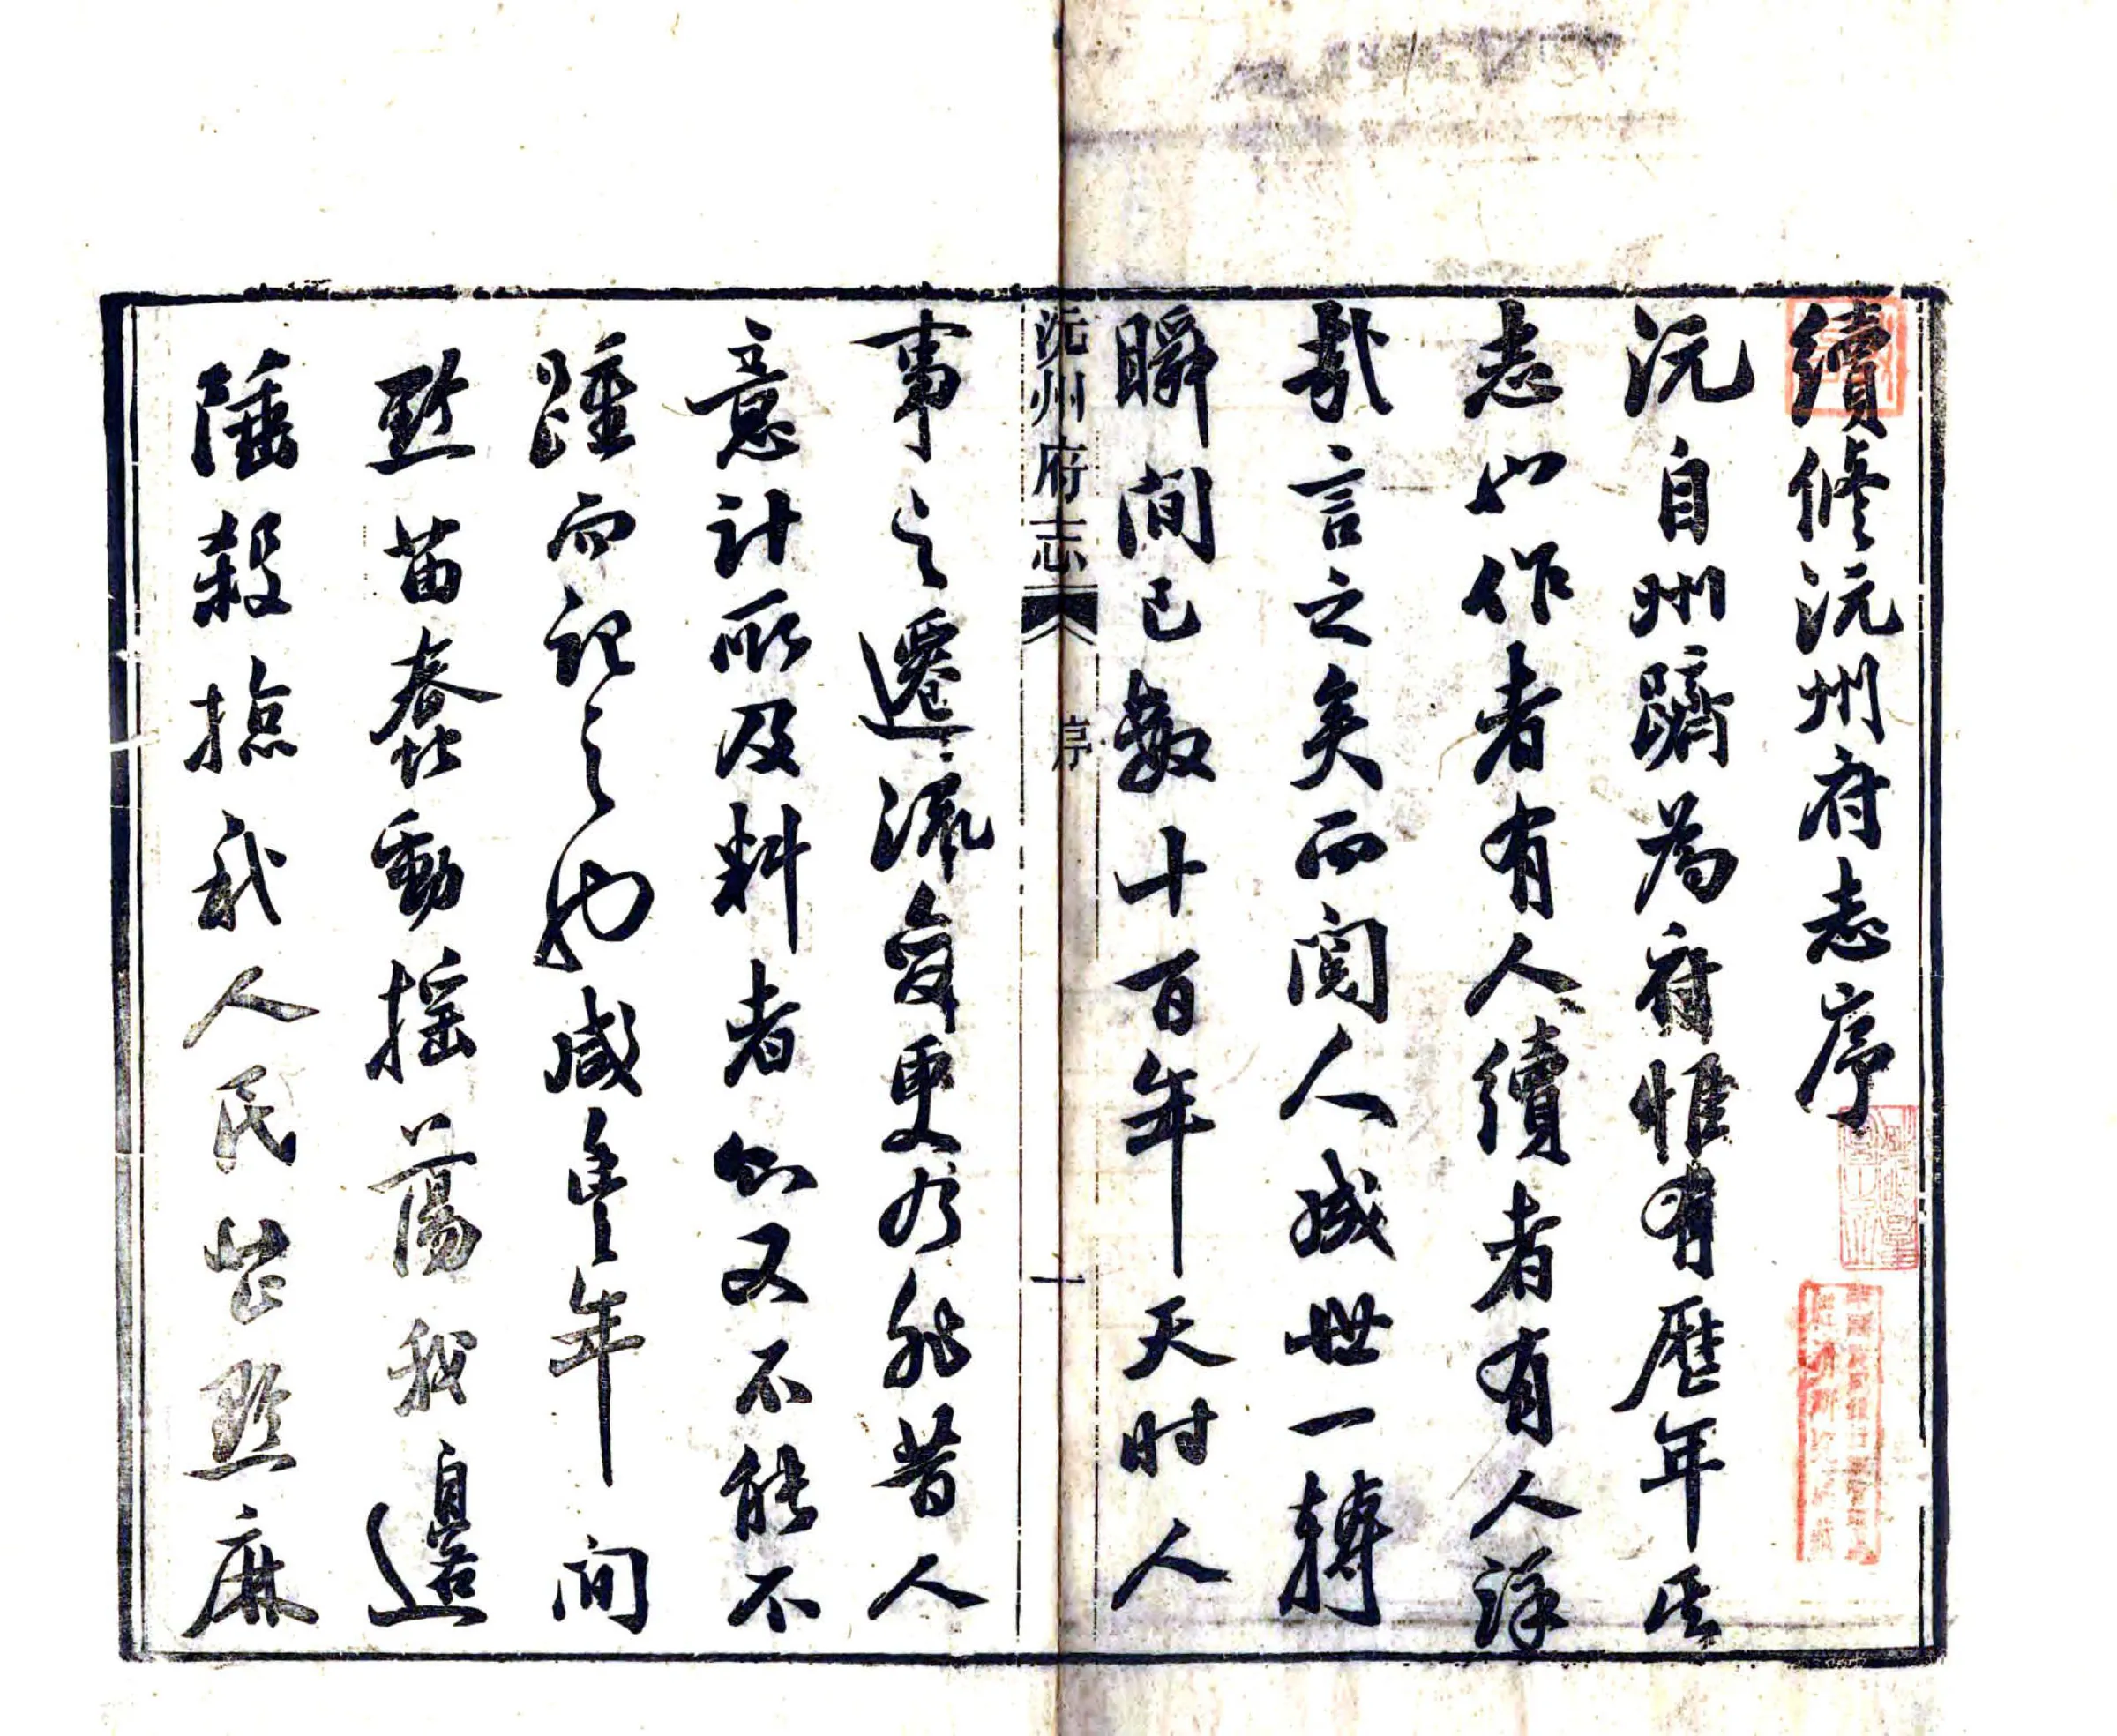 續修沅州府志序
沅自州躋為府惟有歷年其
志也作者有人續者有人詳
哉言之矣而閱人成世一轉
瞬間已數十百年天时人
沅州府志 序 一
事之遷流變更有非昔人
意計所及料者知又不能不
踵而記之也咸豐年間
黔苗蠢動搖蕩我邊
陲殺掠我人民岩黔麻